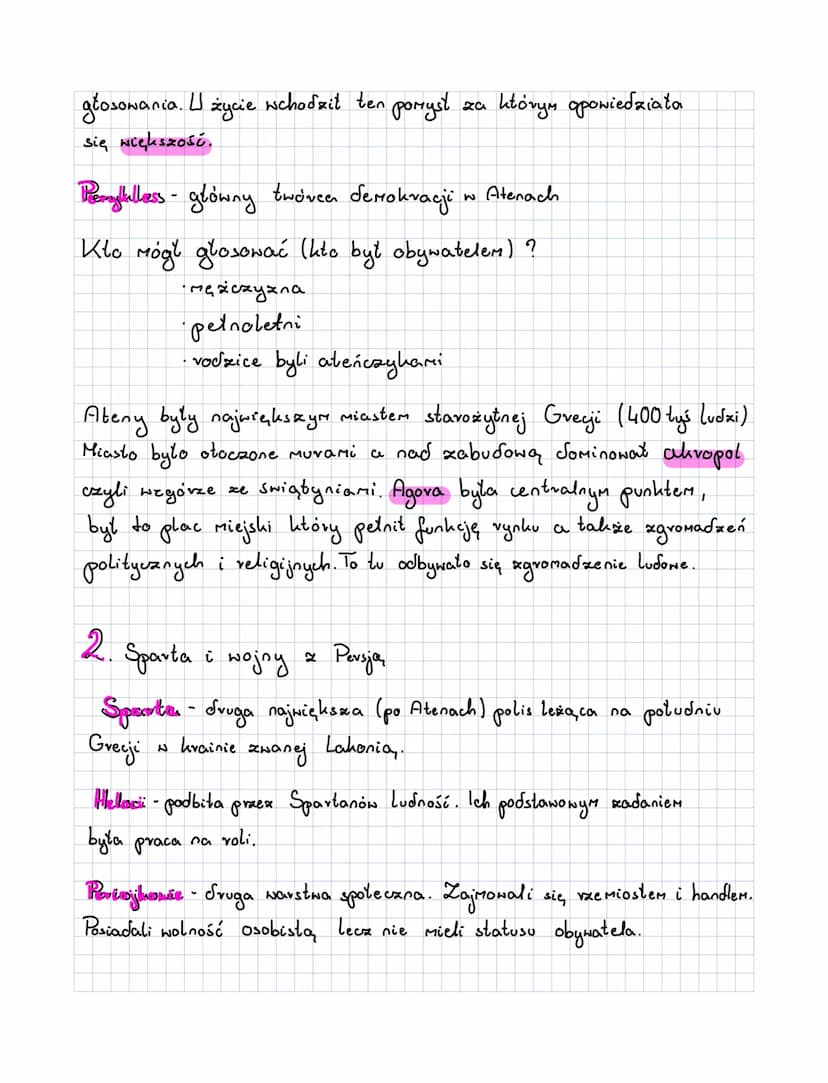 głosowania. W życie wchodził ten pomysł za którym opowiedziała
się większość.
Perykles - główny twórca demokracji w Atenach
Kto mógł głosować (kto był obywatelem) ?
· mężczyzna
· pełnoletni
· rodzice byli ateńczykami
Ateny były największym miastem starożytnej Grecji (400 tyś ludzi)
Miasto było otoczone murami a nad zabudową dominował akropol
czyli wzgórze ze świątyniami. Agora była centralnym punktem,
był to plac miejski który pełnił funkcję rynku a także zgromadzeń
politycznych i religijnych. To tu odbywało się zgromadzenie ludowe.
2. Sparta i wojny z Persją
Sparta - druga największa (po Atenach) polis leżąca na południu
Grecji w krainie zwanej Lakonią.
Heloci - podbita przez Spartanów ludność. Ich podstawowym zadaniem
była praca na roli.
Periojkowie - druga warstwa społeczna. Zajmowali się rzemiosłem i handlem.
Posiadali wolność osobistą lecz nie mieli statusu obywatela.